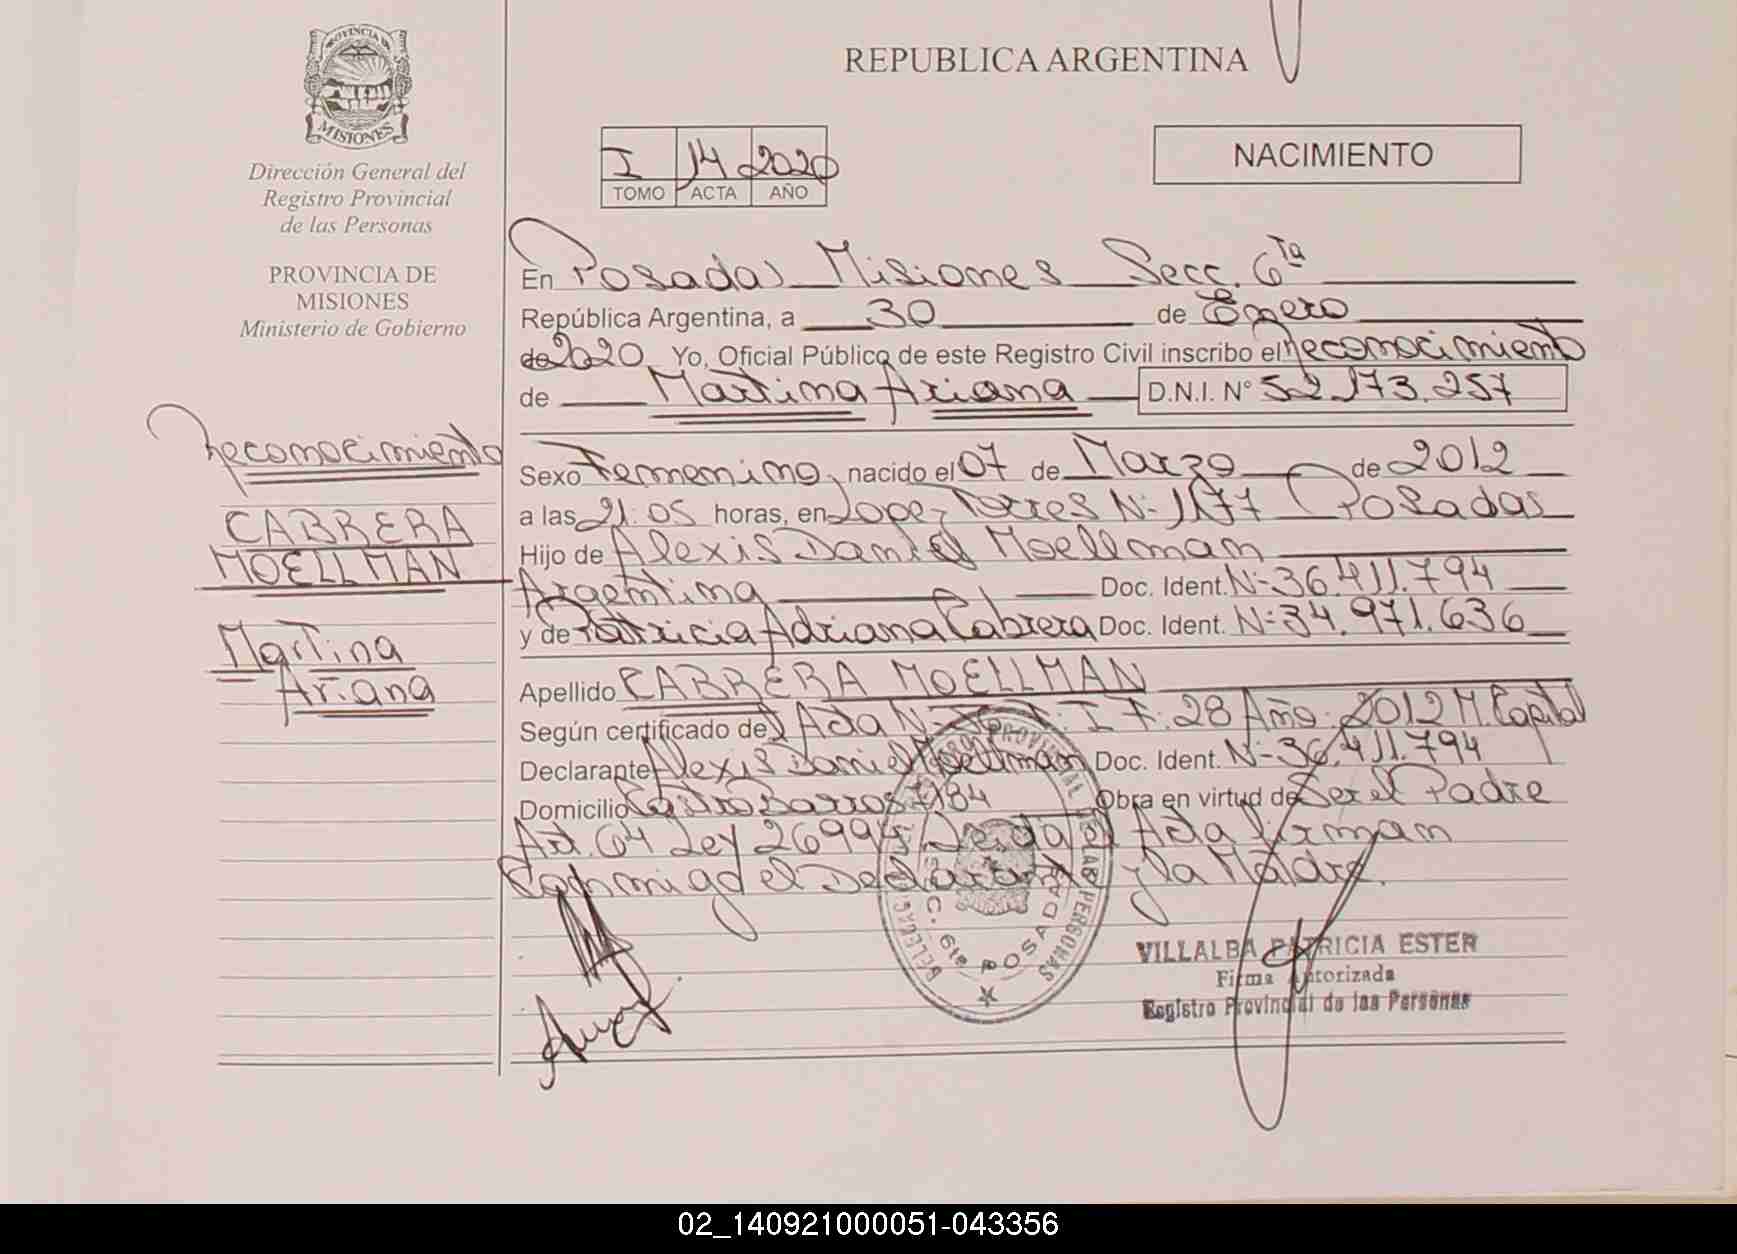 PROVINCIA DE
MISIONES
Dirección General del
Registro Provincial
de las Personas
PROVINCIA DE
MISIONES
Ministerio de Gobierno
Reconocimiento
CABRERA
MOELLMAN
Martina
Ariana
REPUBLICA ARGENTINA
I 14 2020
TOMO ACTA AÑO
NACIMIENTO
En Posadas Misiones Secc. 6ta
República Argentina, a 30 de Enero
de 2020 Yo, Oficial Público de este Registro Civil inscribo el Reconocimiento
de Martina Ariana D.N.I. N° 52.173.257
Sexo Femenino, nacido el 07 de Marzo de 2012
a las 21:05 horas, en Lopez Torres N- 1177 Posadas
Hijo de Alexis Daniel Moellman
Argentina Doc. Ident. N- 36.411.794
y de Patricia Adriana Cabrera Doc. Ident. N- 34.971.636
Apellido CABRERA MOELLMAN
Según certificado de Acta N- T: I F: 28 Año: 2012 M. Capital
Declarante Alexis Daniel Moellman Doc. Ident. N- 36.411.794
Domicilio Castro Barros 7184 Obra en virtud de Ser el Padre
Art. 64 Ley 26994. Leida el Acta firman
Conmigo el Declarante y la Madre.
REGISTRO PROVINCIAL DE LAS PERSONAS
DELEGACION
SECC. 6ta POSADAS
VILLALBA PATRICIA ESTER
Firma Autorizada
Registro Provincial de las Personas
02_140921000051-043356